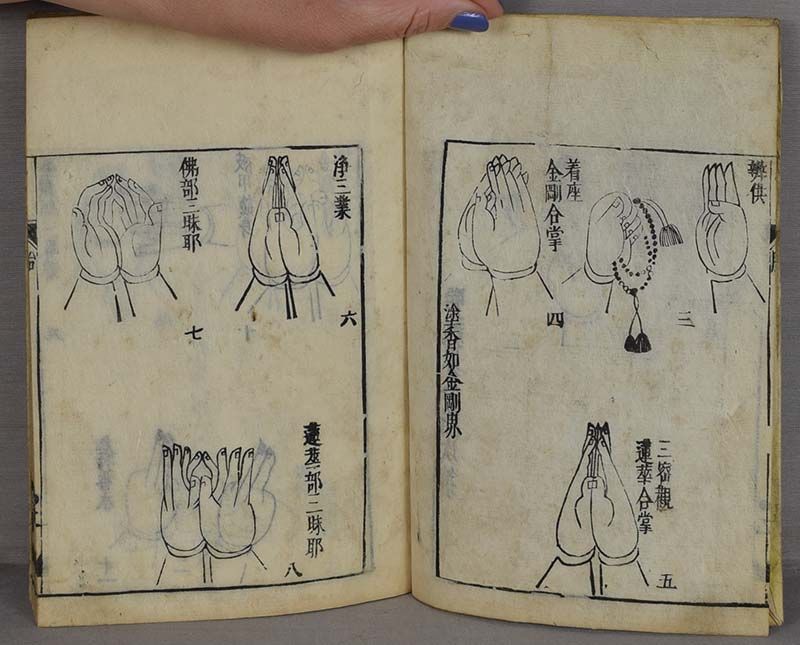 辨供
三
着座
金剛合掌
四
塗香如金剛界
三密觀
蓮華合掌
五
淨三業
六
佛部三昧耶
七
蓮華部三昧耶
八